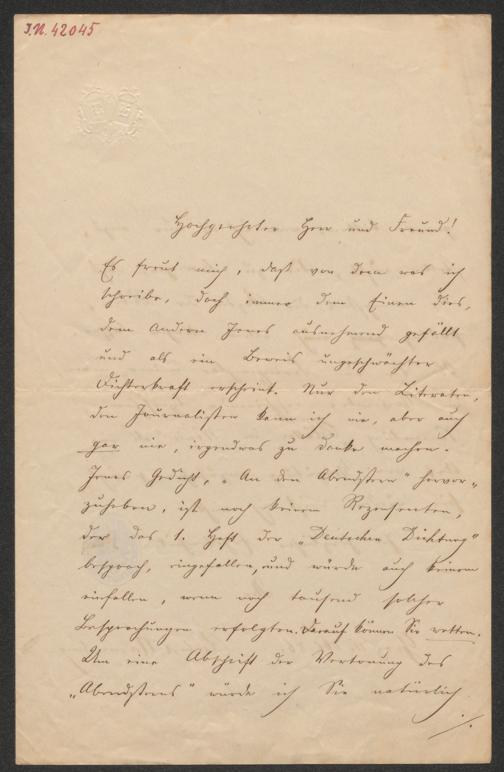 J.N. 42045
Hochgeehrter Herr und Freund!
Es freut mich, daß von dem was ich
schreibe, doch immer dem Einen dies,
dem Andern Jenes ausnehmend gefällt
und als ein Beweis ungeschwächter
Dichterkraft erscheint. Nur den Literaten,
den Journalisten kann ich nie, aber auch
gar nie, irgendwas zu Danke machen.
Jenes Gedicht, „An den Abendstern" hervor-
zuheben, ist noch keinem Rezensenten,
der das 1. Heft der „Deutschen Dichtung"
besprach, eingefallen, und würde auch keinem
einfallen, wenn noch tausend solcher
Besprechungen erfolgten. Darauf können Sie wetten.
Um eine Abschrift der Vertonung des
„Abendsterns" würde ich Sie natürlich
./.